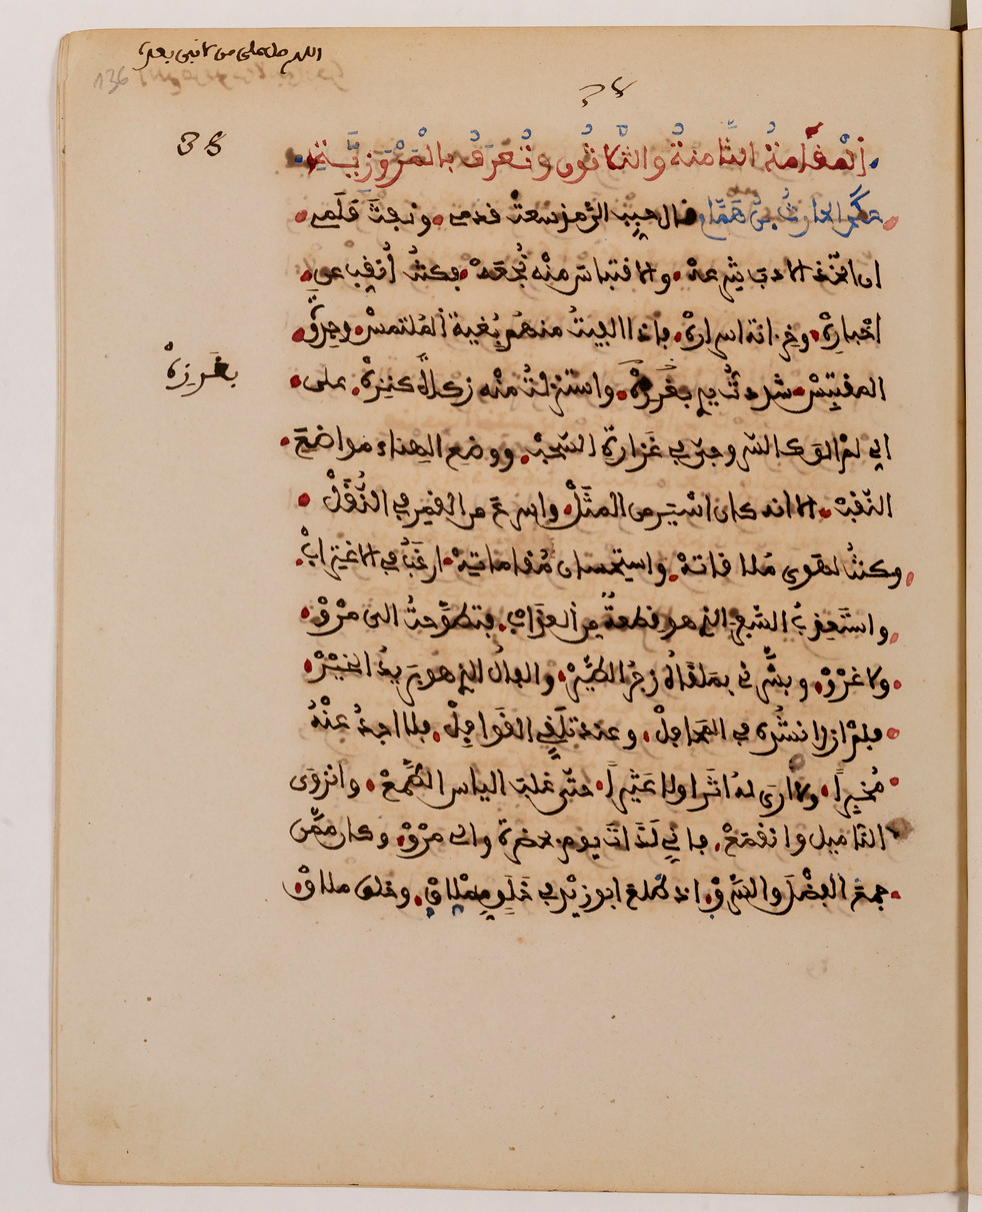 اللهم صل على من لا نبي بعده
136
38
38
المقامة الثامنة والثلاثون وتعرف بالمروزية
حكى الحارث بن همام قال حبب الي مذ سعت قدمي ونفثت قلمي
ان اتخذ الادب شرعة والاقتباس منه نجعة فكنت انقب عن
اخباره وخزانة اسراره فاذا الفيت منهم بغية الملتمس وجذوة
المقتبس شددت يدي بغرزه واستنزلت منه زكاة كنزه على
بغرزه
اني لم الق كالسروجي في غزارة السحب ووضع الهناء مواضع
النقب الا انه كان اسير من المثل واسرع من القمر في النقل
وكنت لهوى ملاقاته واستحسان مقاماته ارغب في الاغتراب
واستعذب السفر الذي هو قطعة من العذاب فتطوحت الى مرو
ولا غرو وبشرني بملقاه زجر الطير والفال الذي هو بريد الخير
فلم ازل انشده في المحافل وعند تلقي القوافل فلا اجد عنه
مخبرا ولا ارى له اثرا ولا عثيرا حتى غلب الياس الطمع وانزوى
التاميل وانقمع فاني لذات يوم بحضرة والي مرو وكان ممن
جمع الفضل والسرو اذ طلع ابو زيد في خلق مملاق وخلق ملاق